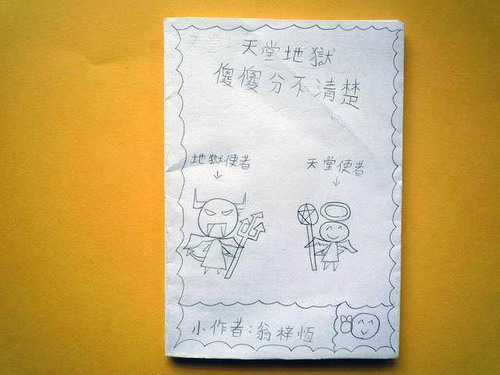 天堂地獄
傻傻分不清楚
地獄使者
天堂使者
小作者:翁梓恆